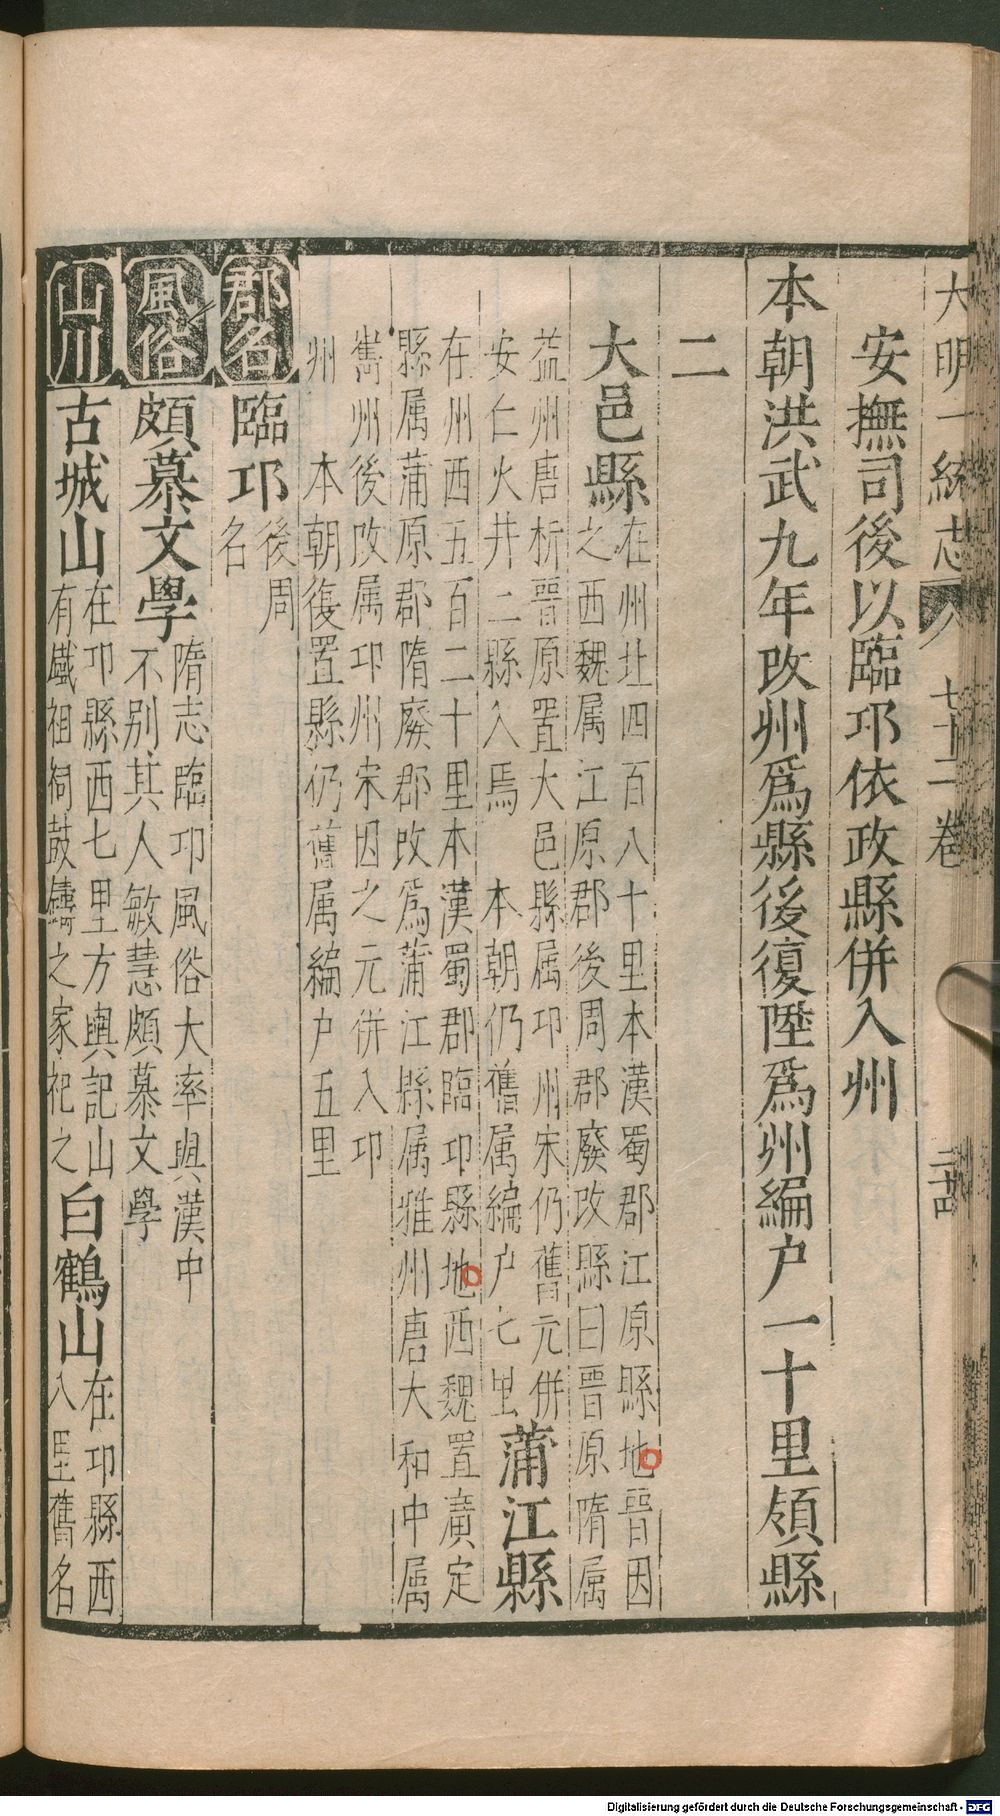 大明一統志 七十二卷 二十四
安撫司後以臨邛依政縣併入州
本朝洪武九年改州爲縣後復陞爲州編户一十里領縣
二
大邑縣
在州北四百八十里本漢蜀郡江原縣地晉因
之西魏属江原郡後周郡廢改縣曰晉原隋属
益州唐析晉原置大邑縣属邛州宋仍舊元併
安仁火井二縣入焉 本朝仍舊属編户七里
蒲江縣
在州西五百二十里本漢蜀郡臨邛縣地西魏置廣定
縣属蒲原郡隋廢郡改爲蒲江縣属雅州唐大和中属
雟州後改属邛州宋因之元併入邛
州 本朝復置縣仍舊属編户五里
郡名 臨邛
後周
名
風俗 頗慕文學
隋志臨邛風俗大率與漢中
不别其人敏慧頗慕文學
山川 古城山
在邛縣西七里方輿記山
有鐵祖祠鼓鑄之家祀之
白鶴山
在邛縣西
八里舊名
Digitalisierung gefördert durch die Deutsche Forschungsgemeinschaft - DFG